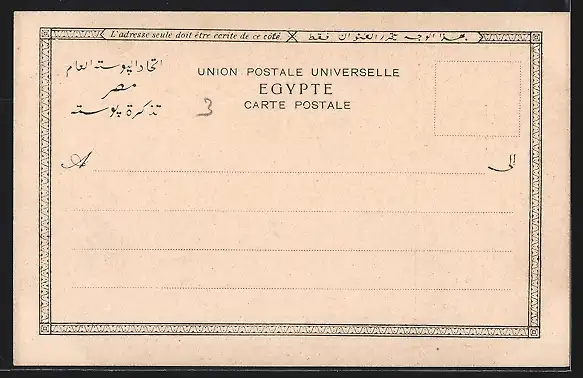 L'adresse seule doit être écrite de ce côté. بهذا الوجه يحرر العنوان فقط.
اتحاد البوسته العام
مصر
تذكرة بوسته
UNION POSTALE UNIVERSELLE
EGYPTE
CARTE POSTALE
3
A الى